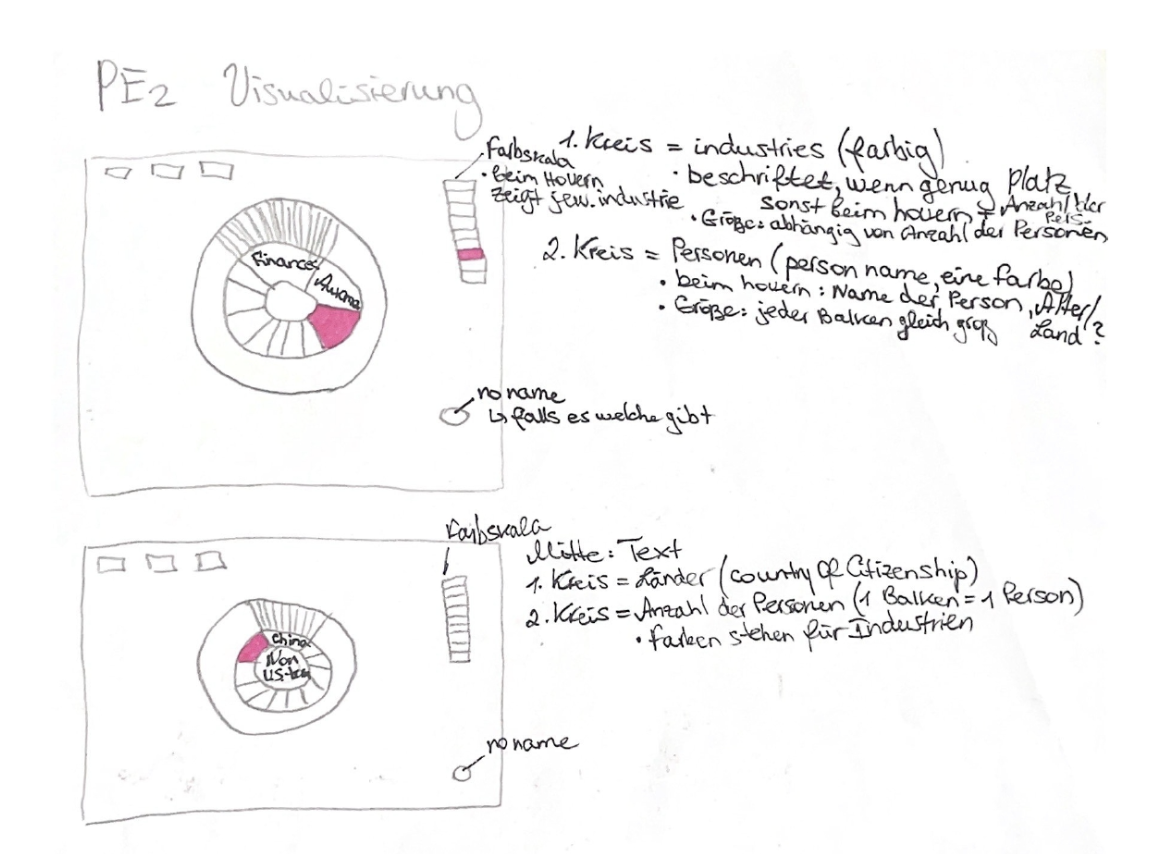 PE2 Visualisierung
Farbskala
• beim Hovern
zeigt jew. industrie
1. Kreis = industries (farbig)
• beschriftet, wenn genug Platz
sonst beim hovern + Anzahl der
Pers.
• Größe: abhängig von Anzahl der Personen
2. Kreis = Personen (person name, eine farbe)
• beim hovern: Name der Person, Alter/
Land?
• Größe: jeder Balken gleich groß
Finance
no name
↳ falls es welche gibt
Farbskala
Mitte: Text
1. Kreis = Länder (country of Citizenship)
2. Kreis = Anzahl der Personen (1 Balken = 1 Person)
• farben stehen für Industrien
China
Non
no name